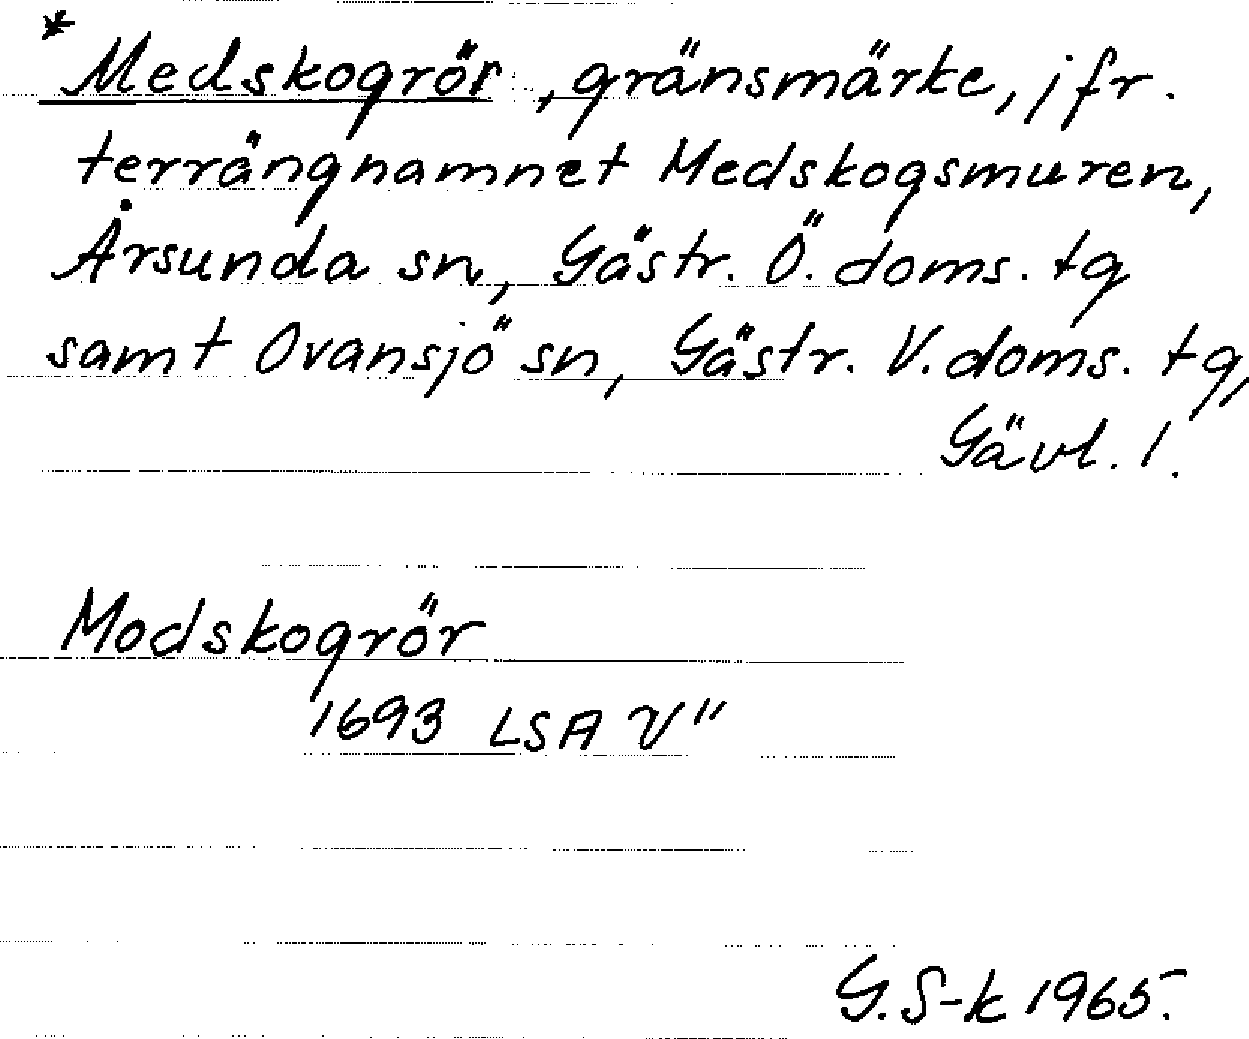 *Medskogrör, gränsmärke, jfr.
terrängnamnet Medskogsmuren,
Årsunda sn, Gästr. Ö. doms. tg
samt Ovansjö sn, Gästr. V. doms. tg,
Gävl. l.
Modskogrör
1693 LSA V"
G. S-k 1965.